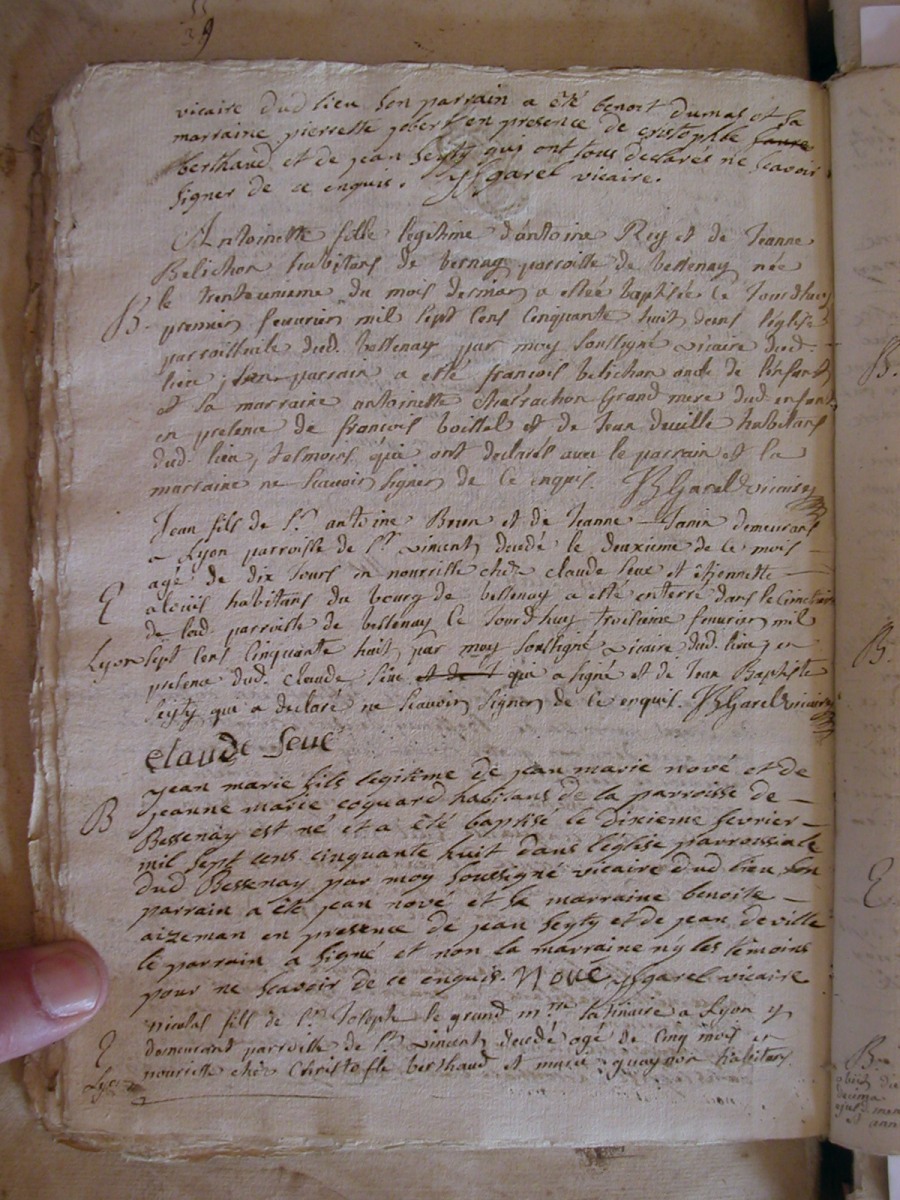 29
vicaire dud lieu son parrain a été benoit dumas et sa
marraine pierrette jobert en presence de cristophle faure
berthaud et de jean seyty qui ont tous declarés ne scavoir
signer de ce enquis. JBgarel vicaire.
Antoinette fille legitime d'antoine Rey et de Jeanne
Belichon habitans de bernay parroisse de bessenay née
le trenteunieme du mois de a estée baptisée ce Jourdhuy
B. premier feuvrier mil sept cens Cinquante huit dans l'église
parroissiale dud. bessenay par moy soussigné vicaire dud.
lieu, son parrain a esté francois belichon oncle de l'enfant
et sa marraine antoinette Grand mere dud enfant
en presence de francois voissel et de Jean deville habitans
dud. lieu, tesmoins qui ont declarés avec le parrain et la
marraine ne scavoir signer de ce enquis. JBGarel vicaire
Jean fils de Sr. antoine Brun et de Jeanne Janin demeurans
a Lyon parroisse de St. vincent, decedé le deuxieme de ce mois
agé de dix Jours en nourrisse chés claude seve et étiennette
E habitans du bourg de bessenay a esté enterré dans le Cimetiere
de lad. parroisse de bessenay ce Jourdhuy troisieme feuvrier mil
Lyon sept cens Cinquante huit, par moy soussigné vicaire dud. lieu, en
presence dud. claude seve et de J qui a signé et de Jean Baptiste
seyty qui a declaré ne scavoir signer de ce enquis. JBGarel vicaire
claude Seve
jean marie fils legitime de jean marie nové et de
jeanne marie coquard habitans de la parroisse de
B Bessenay est né et a été baptisé le dixieme fevrier
mil sept cens cinquante huit dans l'église parroissiale
dud Bessenay par moy soussigné vicaire dud lieu son
parrain a été jean nové et sa marraine benoite
aizeman en presence de jean seyty et de jean deville
le parrain a signé et non la marraine ny les témoins
pour ne scavoir de ce enquis. Nové JBgarel vicaire
nicolas fils de Sr. Joseph le grand mtre. satinaire a Lyon y
E demeurant parroisse de St. vincent, decedé agé de Cinq mois en
Lyon nourrisse chés Christofle berthaud et marie quaynon habitans
B.
B.
E
B.